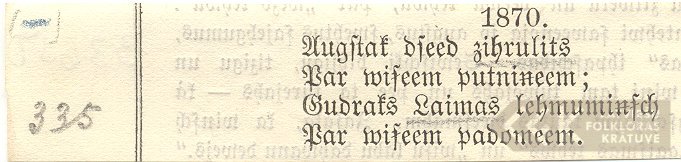 1870.
(—)
Augstak dseed zihrulits
Par wiseem putnineem;
335
Gudraks Laimas lehmuminsch
Par wiseem padomeem.
FOLKLORAS
KRATUVE